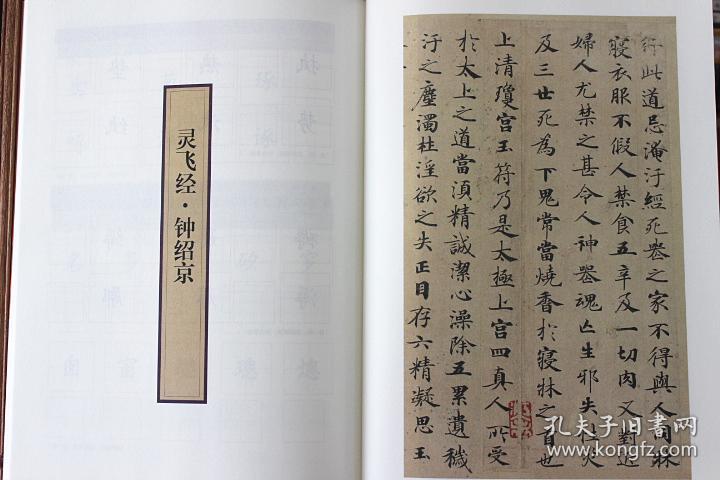 灵飞经·钟绍京
行此道忌淹汙經死喪之家不得與人同牀
寢衣服不假人禁食五辛及一切肉又對近
婦人尤禁之甚令人神喪魂亡生邪失性灾
及三世死為下鬼常當燒香於寢牀之首也
上清瓊宮玉符乃是太極上宮四真人所受
於太上之道當須精誠潔心澡除五累遺穢
汙之塵濁杜淫欲之失正目存六精凝思玉
孔夫子旧书网
www.kongfz.com